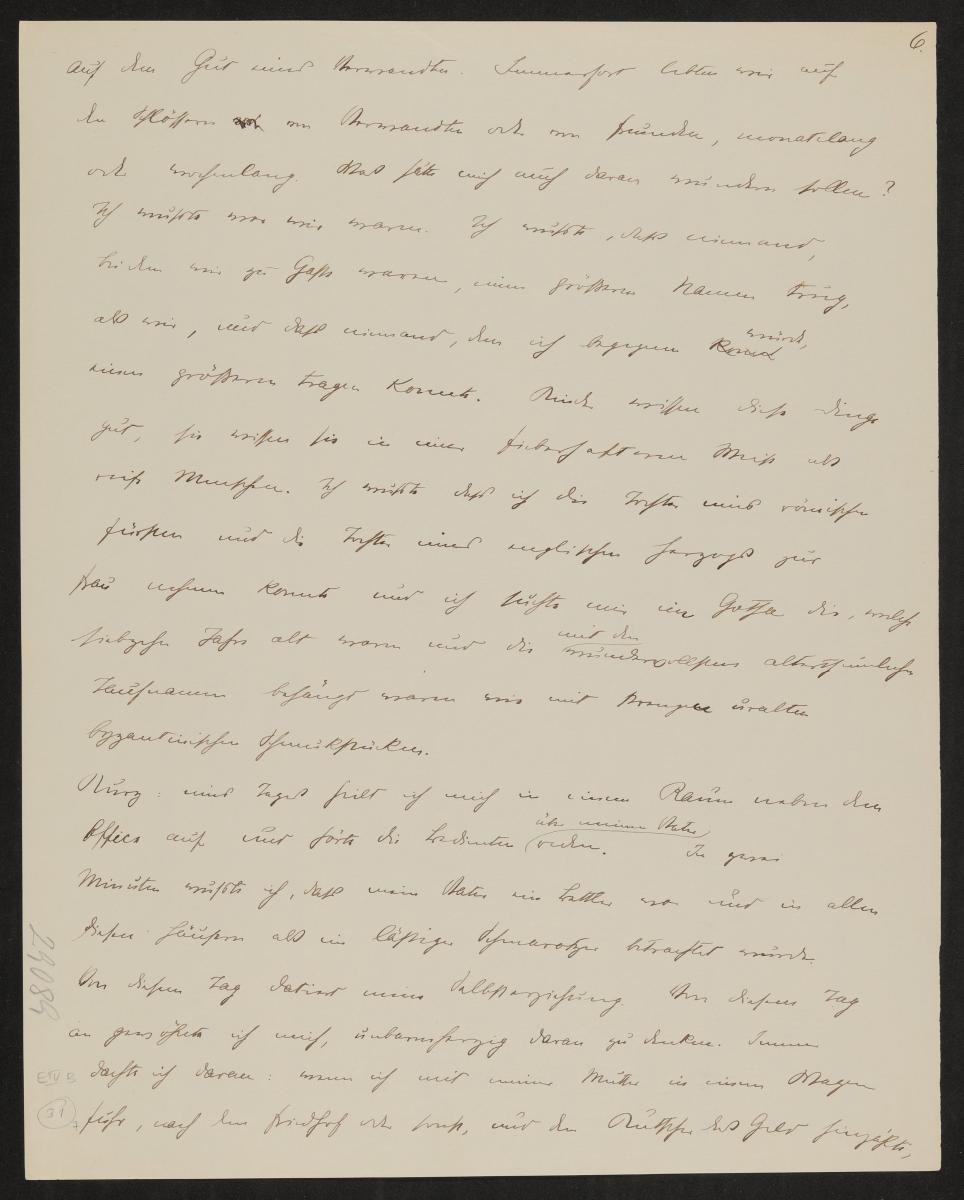 6.
auf dem Gut eines Verwandten. Immerfort lebten wir auf
den Schlössern von Verwandten oder von Freunden, monatelang
oder wochenlang. Was hätte mich auch daran wundern sollen?
Ich wußte wer wir waren. Ich wußte, daß niemand,
bei dem wir zu Gaste waren, einen größeren Namen trug,
als wir, und daß niemand, dem ich begegnen würde,
einen größeren tragen konnte. Kinder wissen diese Dinge
gut, sie wissen sie in einer fieberhafteren Weise als
reife Menschen. Ich wußte daß ich die Tochter eines römischen
Fürsten und die Tochter eines englischen Herzogs zur
Frau nehmen konnte und ich suchte mir im Gotha die, welche
siebzehn Jahre alt waren und die mit den wundervollsten alterthümlichen
Taufnamen behängt waren wie mit uralten
byzantinischen Schmuckstücken.
Kurz: eines Tages hielt ich mich in einem Raum neben dem
Office auf und hörte die Bedienten über meinen Vater reden. In zwei
Minuten wußte ich, daß mein Vater ein Bettler war und in allen
diesen Häusern als ein lästiger Schmarotzer betrachtet wurde.
Von diesem Tag datiert meine Selbsterziehung. Von diesem Tag
an gewöhnte ich mich, unbarmherzig daran zu denken. Immer
dachte ich daran: wenn ich mit meiner Mutter in einem Wagen
fuhr, nach dem Friedhof oder sonst, und dem Kutscher das Geld hinzählte,
29089
E IV B
31